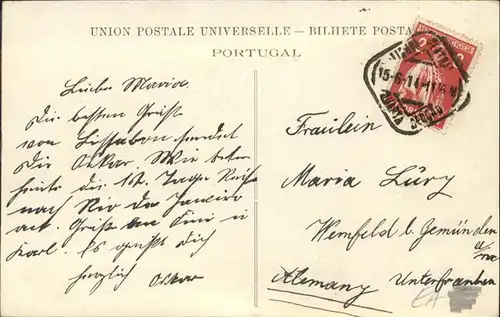 UNION POSTALE UNIVERSELLE — BILHETE POSTA
PORTUGAL
15-6-14
Liebe Maria.
Die besten Grüße
von Lissabon sendet
Dir Oskar. Wir treten
heute die 12. Tage Reise
nach Rio de Janeiro
an. Gruß an Kuni u
Karl. Es grüßt dich
herzlich Oskar
Fräulein
Maria Lury
Wernfeld b. Gemünden
a/M
Alemany Unterfranken